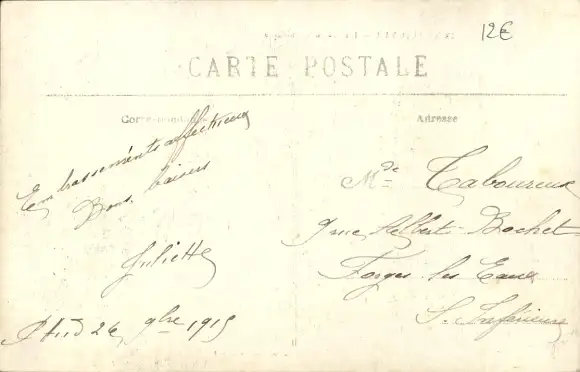 12€
CARTE POSTALE
Correspondance
Adresse
Embrassements affectueux
Bons baisers
Juliette
26 9bre 1915
Mde Taboureux
9 rue Albert Bochet
Forges les Eaux
S. Inférieure